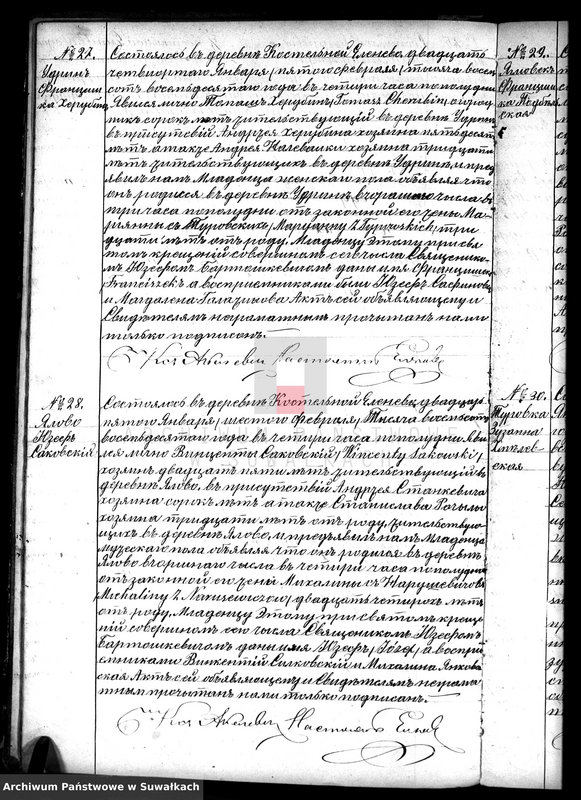 № 27.
Удринъ
Францишка Херубинъ
Состоялось въ деревнѣ Костельной Еленево двадцать
четвертаго Января /пятого февраля/ тысяча восемь
сотъ восемьдесятаго года въ четыри часа по полудни
Явился лично Томашъ Херубинъ /Tomasz Cherubin/
никъ сорокъ лѣтъ жительствующій въ деревнѣ Удринъ
въ присутствіи Андрея Херубина хозяина пятьдесятъ
лѣтъ а также Андрея Калевашки хозяина тридцати
лѣтъ жительствующихъ въ деревнѣ Удринъ, и пред
явилъ намъ Младенца женскаго пола объявляя что
онъ родился въ деревнѣ Удринъ вчорашняго числа въ
три часа по полудни отъ законной его жены Ма
ріянны съ Туровскихъ /Maryanny z Turowskich/ три
дцати лѣтъ отъ роду. Младенцу этому при свя
томъ крещеніи совершонномъ сего числа Священико
мъ Юзефомъ Бартошкевичомъ дано имя Францишка
/Franciszek/ а воспріемниками были Юзефъ
и Магдалена Актъ сей объявляющему и
Свидѣтелямъ неграматнымъ прочытанъ нами
только подписанъ.
Кс. Настоятель Еленево
№ 28.
Ялово
Юзефъ
Саковскій
Состоялось въ деревнѣ Костельной Еленево двадцать
пятого Января /шестого Февраля/ Тысяча восемьсотъ
восемьдесятаго года въ четыри часа по полудни Яви
лся лично Винценты Саковскій /Wincenty Sakowski/
хозяинъ двадцать пяти лѣтъ жительствующій въ
деревнѣ Ялово, въ присутствіи Андрея Станкевича
хозяина сорокъ лѣтъ а также Станислава
хозяина тридцати лѣтъ отъ роду, жительствую
щихъ въ деревнѣ Ялово, и предъявилъ намъ Младенца
мужескаго пола объявляя что онъ родился въ деревнѣ
Ялово вчорашняго числа въ четыри часа по полудни
отъ законной его жены Михалины съ Нарушевичовъ
/Michaliny z Naruszewiczow/ двадцать четырохъ лѣтъ
отъ роду. Младенцу этому при святомъ креще
ніи совершономъ сего числа Священикомъ Юзефомъ
Бартошкевичомъ дано имя Юзефъ /Józef/ а воспрі
емниками Винкентій и Михалина Янков
ская Актъ сей объявляющему и Свидѣтелямъ неграма
тнымъ прочытанъ нами только подписанъ.
Кс. Настоятель Еленево
№ 29.
Ялловекъ
Францишка
ская
№ 30.
Туровка
Зузанна
ская
Archiwum Państwowe w Suwałkach